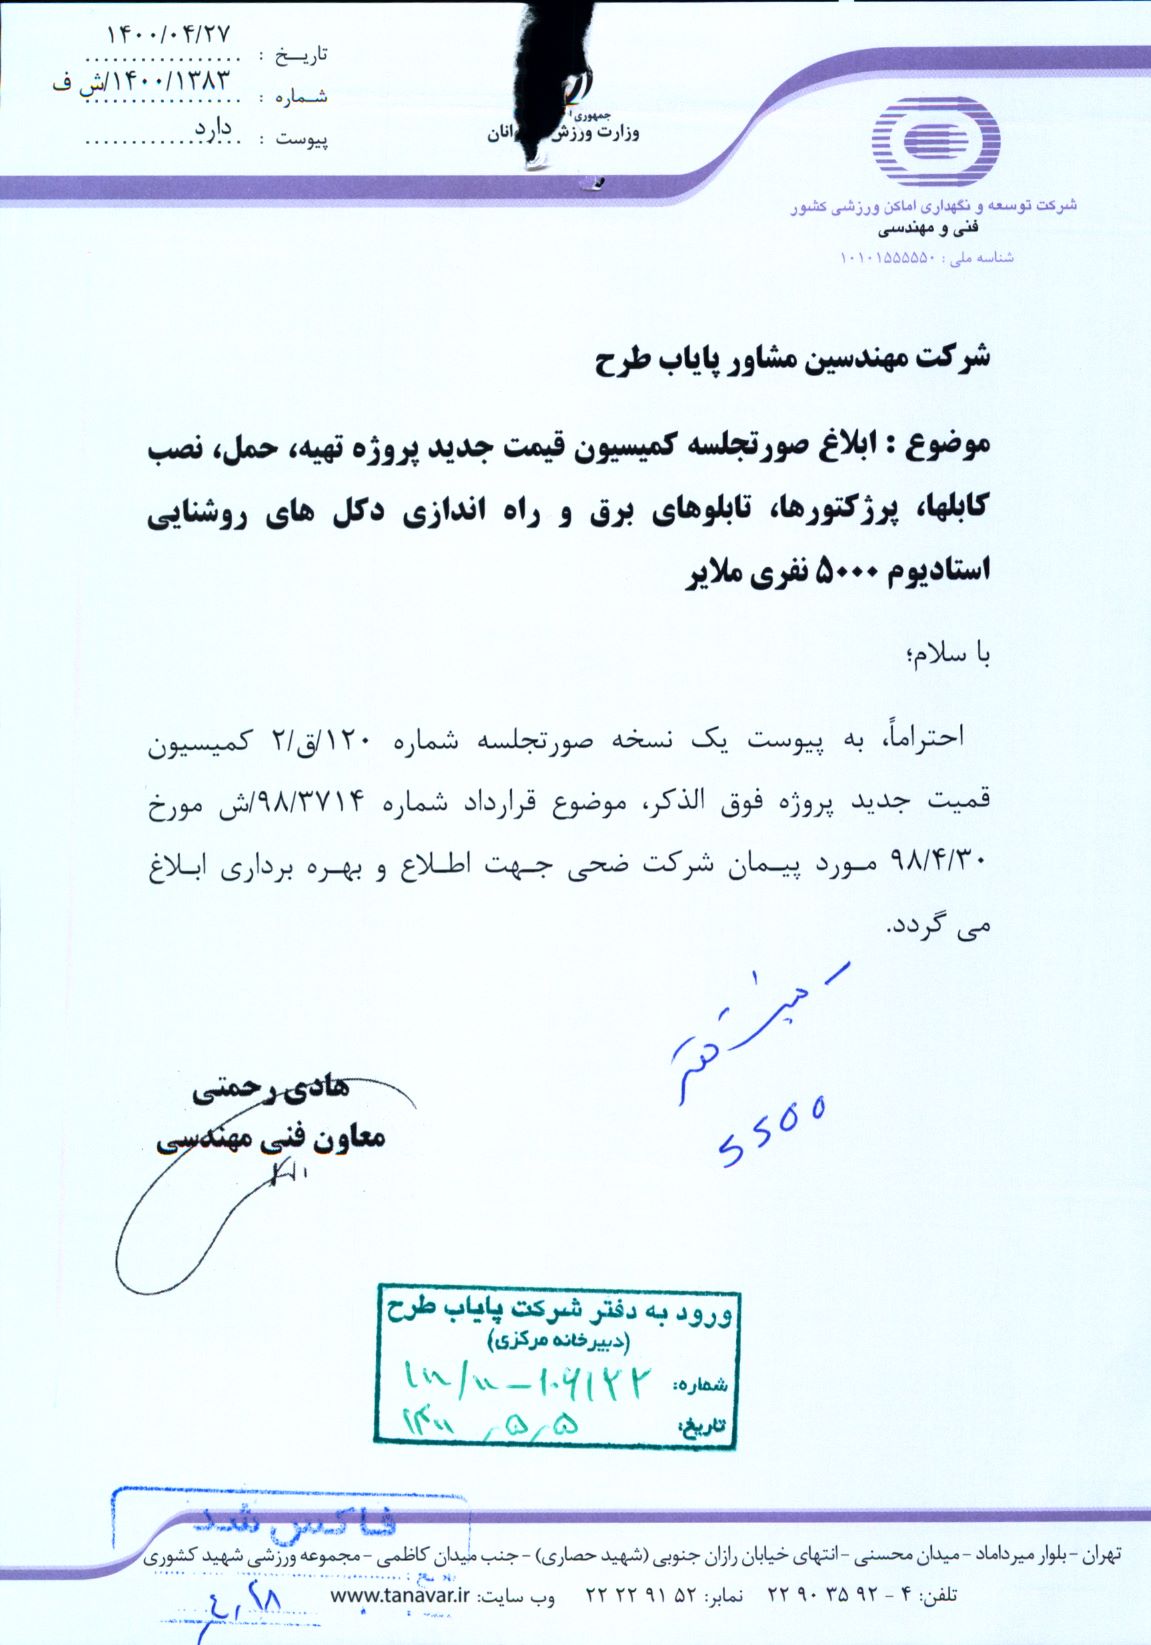 تاریخ : ۱۴۰۰/۰۴/۲۷
شماره : ۱۴۰۰/۱۳۸۳/ش ف
پیوست : دارد
جمهوری
وزارت ورزش
شرکت توسعه و نگهداری اماکن ورزشی کشور
فنی و مهندسی
شناسه ملی : ۱۰۱۰۱۵۵۵۵۵۰
شرکت مهندسین مشاور پایاب طرح
موضوع : ابلاغ صورتجلسه کمیسیون قیمت جدید پروژه تهیه، حمل، نصب
کابلها، پرژکتورها، تابلوهای برق و راه اندازی دکل های روشنایی
استادیوم ۵۰۰۰ نفری ملایر
با سلام؛
احتراماً، به پیوست یک نسخه صورتجلسه شماره ۱۲۰/ق/۲ کمیسیون
قمیت جدید پروژه فوق الذکر، موضوع قرارداد شماره ۹۸/۳۷۱۴/ش مورخ
۹۸/۴/۳۰ مورد پیمان شرکت ضحی جهت اطلاع و بهره برداری ابلاغ
می گردد.
هادی رحمتی
معاون فنی مهندسی
ورود به دفتر شرکت پایاب طرح
(دبیرخانه مرکزی)
شماره:
تاریخ:
فاکس شد
تهران - بلوار میرداماد - میدان محسنی - انتهای خیابان رازان جنوبی (شهید حصاری) - جنب میدان کاظمی - مجموعه ورزشی شهید کشوری
تلفن: ۴ - ۹۲ ۳۵ ۹۰ ۲۲ نمابر: ۵۲ ۹۱ ۲۲ ۲۲ وب سایت: www.tanavar.ir